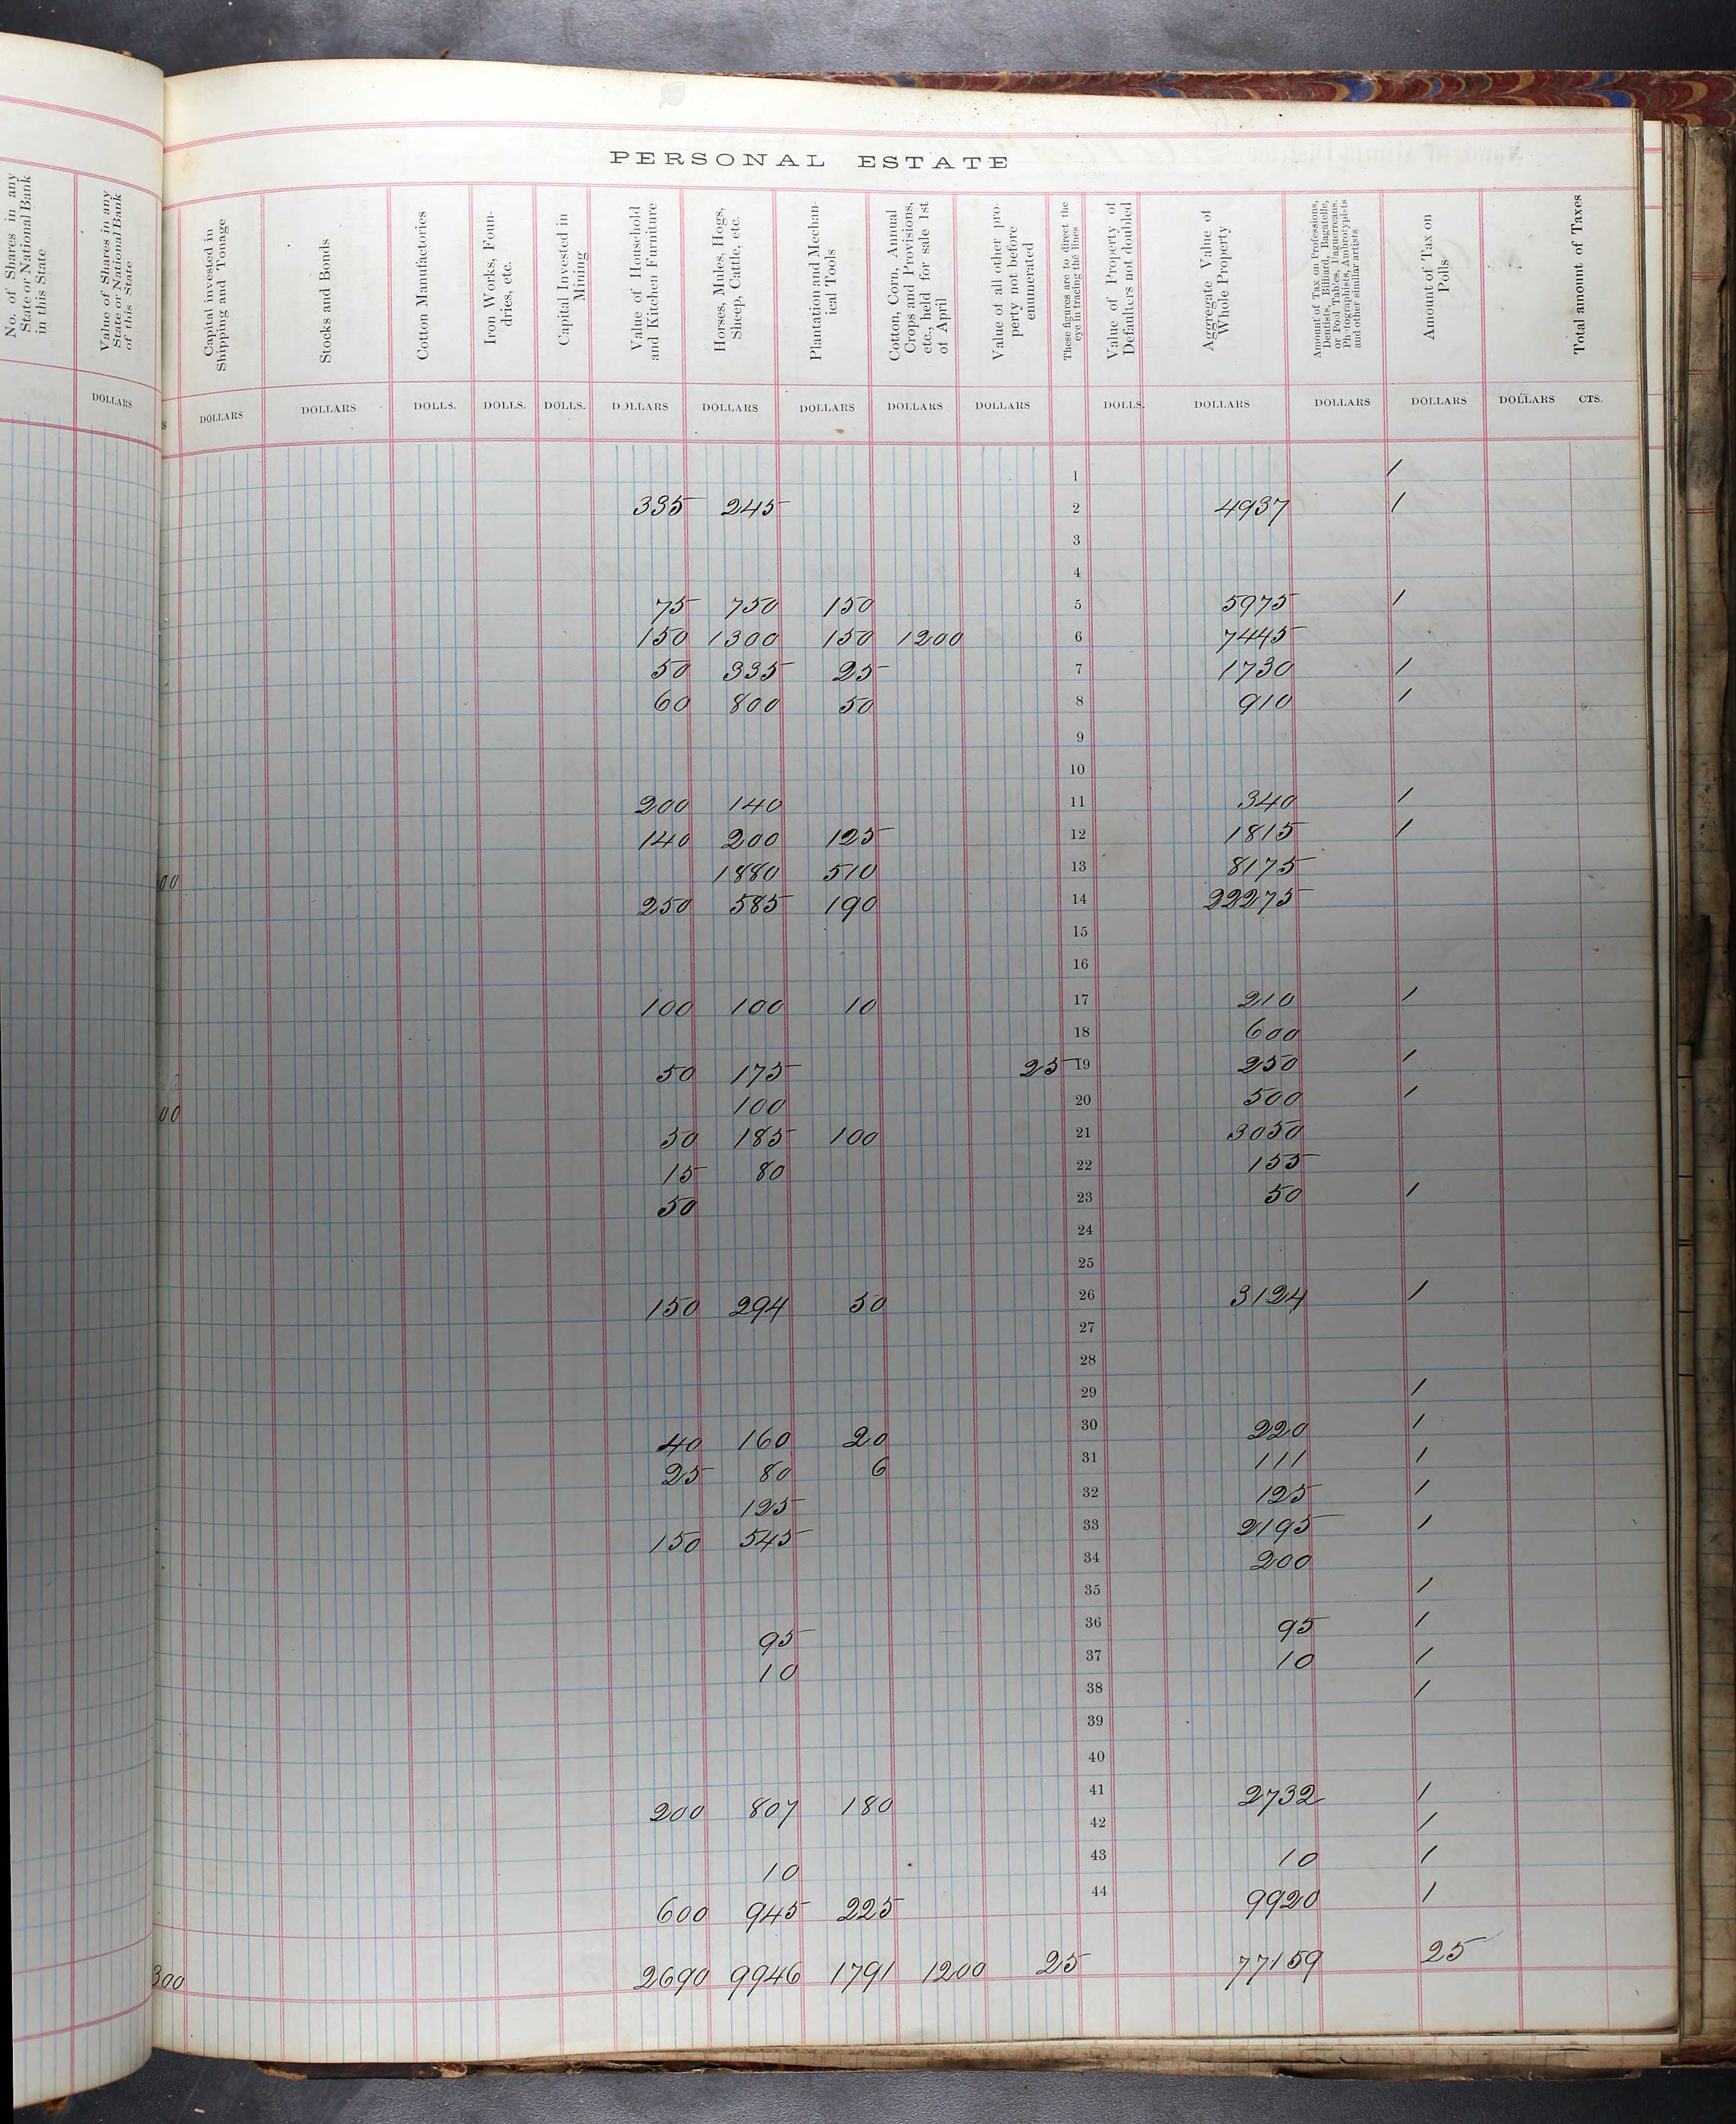 PERSONAL ESTATE
No. of Shares in any State or National Bank in this State
Value of Shares in any State or National Bank of this State
Capital invested in Shipping and Tonage
Stocks and Bonds
Cotton Manufactories
Iron Works, Foundries, etc.
Capital Invested in Mining
Value of Household and Kitchen Furniture
Horses, Mules, Hogs, Sheep, Cattle, etc.
Plantation and Mechanical Tools
Cotton, Corn, Annual Crops and Provisions, etc., held for sale 1st of April
Value of all other property not before enumerated
These figures are to direct the eye in tracing the lines
Value of Property of Defaulters not doubled
Aggregate Value of Whole Property
Amount of Tax on Professions, Dentists, Billiard, Bagatelle, or Pool Tables, Daguerreans, Photographists, Ambrotypists and other similar artists
Amount of Tax on Polls
Total amount of Taxes
DOLLARS DOLLARS DOLLARS DOLLS. DOLLS. DOLLS. DOLLARS DOLLARS DOLLARS DOLLARS DOLLARS DOLLS. DOLLARS DOLLARS DOLLARS DOLLARS CTS.
1 1
335 245 2 4937 1
3
4
75 750 150 5 5975 1
150 1300 150 1200 6 7445
50 335 25 7 1730 1
60 800 50 8 910 1
9
10
200 140 11 340 1
140 200 125 12 1815 1
00 1880 510 13 8175
250 585 190 14 22275
15
16
100 100 10 17 210 1
18 600
50 175 25 19 250 1
00 100 20 500 1
50 185 100 21 3050
15 80 22 155
50 23 50 1
24
25
150 294 50 26 3124 1
27
28
29 1
40 160 20 30 220 1
25 80 6 31 111 1
125 32 125 1
150 545 33 2195 1
34 200
35 1
95 36 95 1
10 37 10 1
38 1
39
40
200 807 180 41 2732 1
42 1
10 43 10 1
600 945 225 44 9920 1
300 2690 9946 1791 1200 25 77159 25